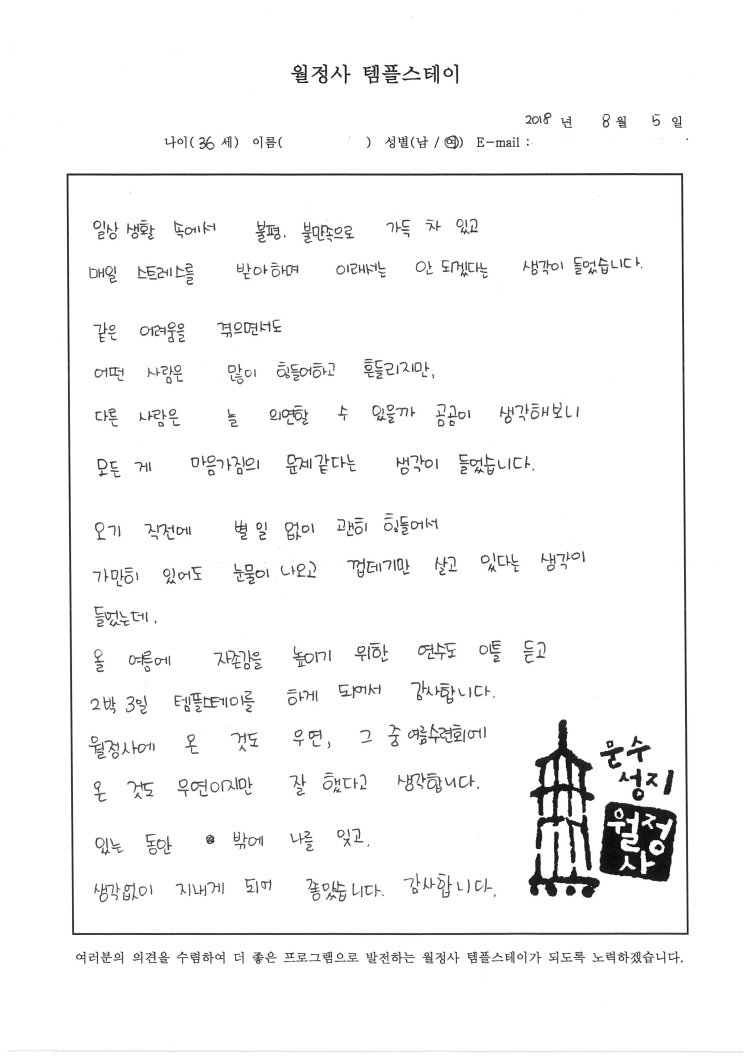 월정사 템플스테이
2018 년 8 월 5 일
나이( 36 세) 이름( ) 성별(남 / 여) E-mail :
일상 생활 속에서 불평, 불만족으로 가득 차 있고
매일 스트레스를 받아하며 이래서는 안 되겠다는 생각이 들었습니다.
같은 어려움을 겪으면서도
어떤 사람은 많이 힘들어하고 흔들리지만,
다른 사람은 늘 의연할 수 있을까 곰곰이 생각해보니
모든 게 마음가짐의 문제같다는 생각이 들었습니다.
오기 직전에 별 일 없이 괜히 힘들어서
가만히 있어도 눈물이 나오고 껍데기만 살고 있다는 생각이
들었는데,
올 여름에 자존감을 높이기 위한 연수도 이틀 듣고
2박 3일 템플스테이를 하게 되어서 감사합니다.
월정사에 온 것도 우연, 그 중 여름수련회에
온 것도 우연이지만 잘 했다고 생각합니다.
있는 동안 밖에 나를 잊고,
생각없이 지내게 되어 좋았습니다. 감사합니다.
문수
성지
월정
사
여러분의 의견을 수렴하여 더 좋은 프로그램으로 발전하는 월정사 템플스테이가 되도록 노력하겠습니다.